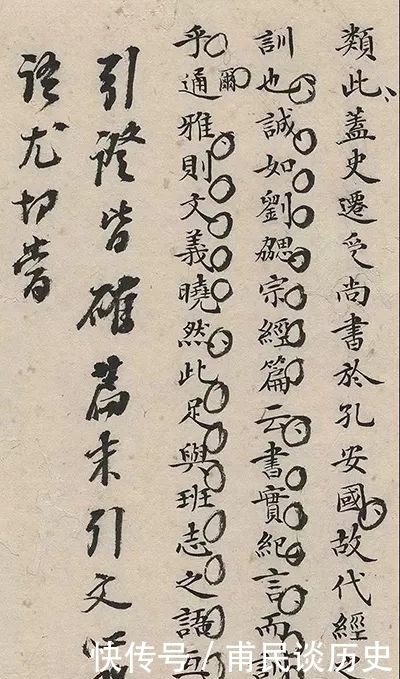 類此蓋史遷受尚書於孔安國故代經之
訓也誠如劉勰宗經篇云書實紀言而訓
乎通爾雅則文義曉然此足與班志之語互
引證皆確篇末引文
語尤切當
快传号 / 甫民谈历史